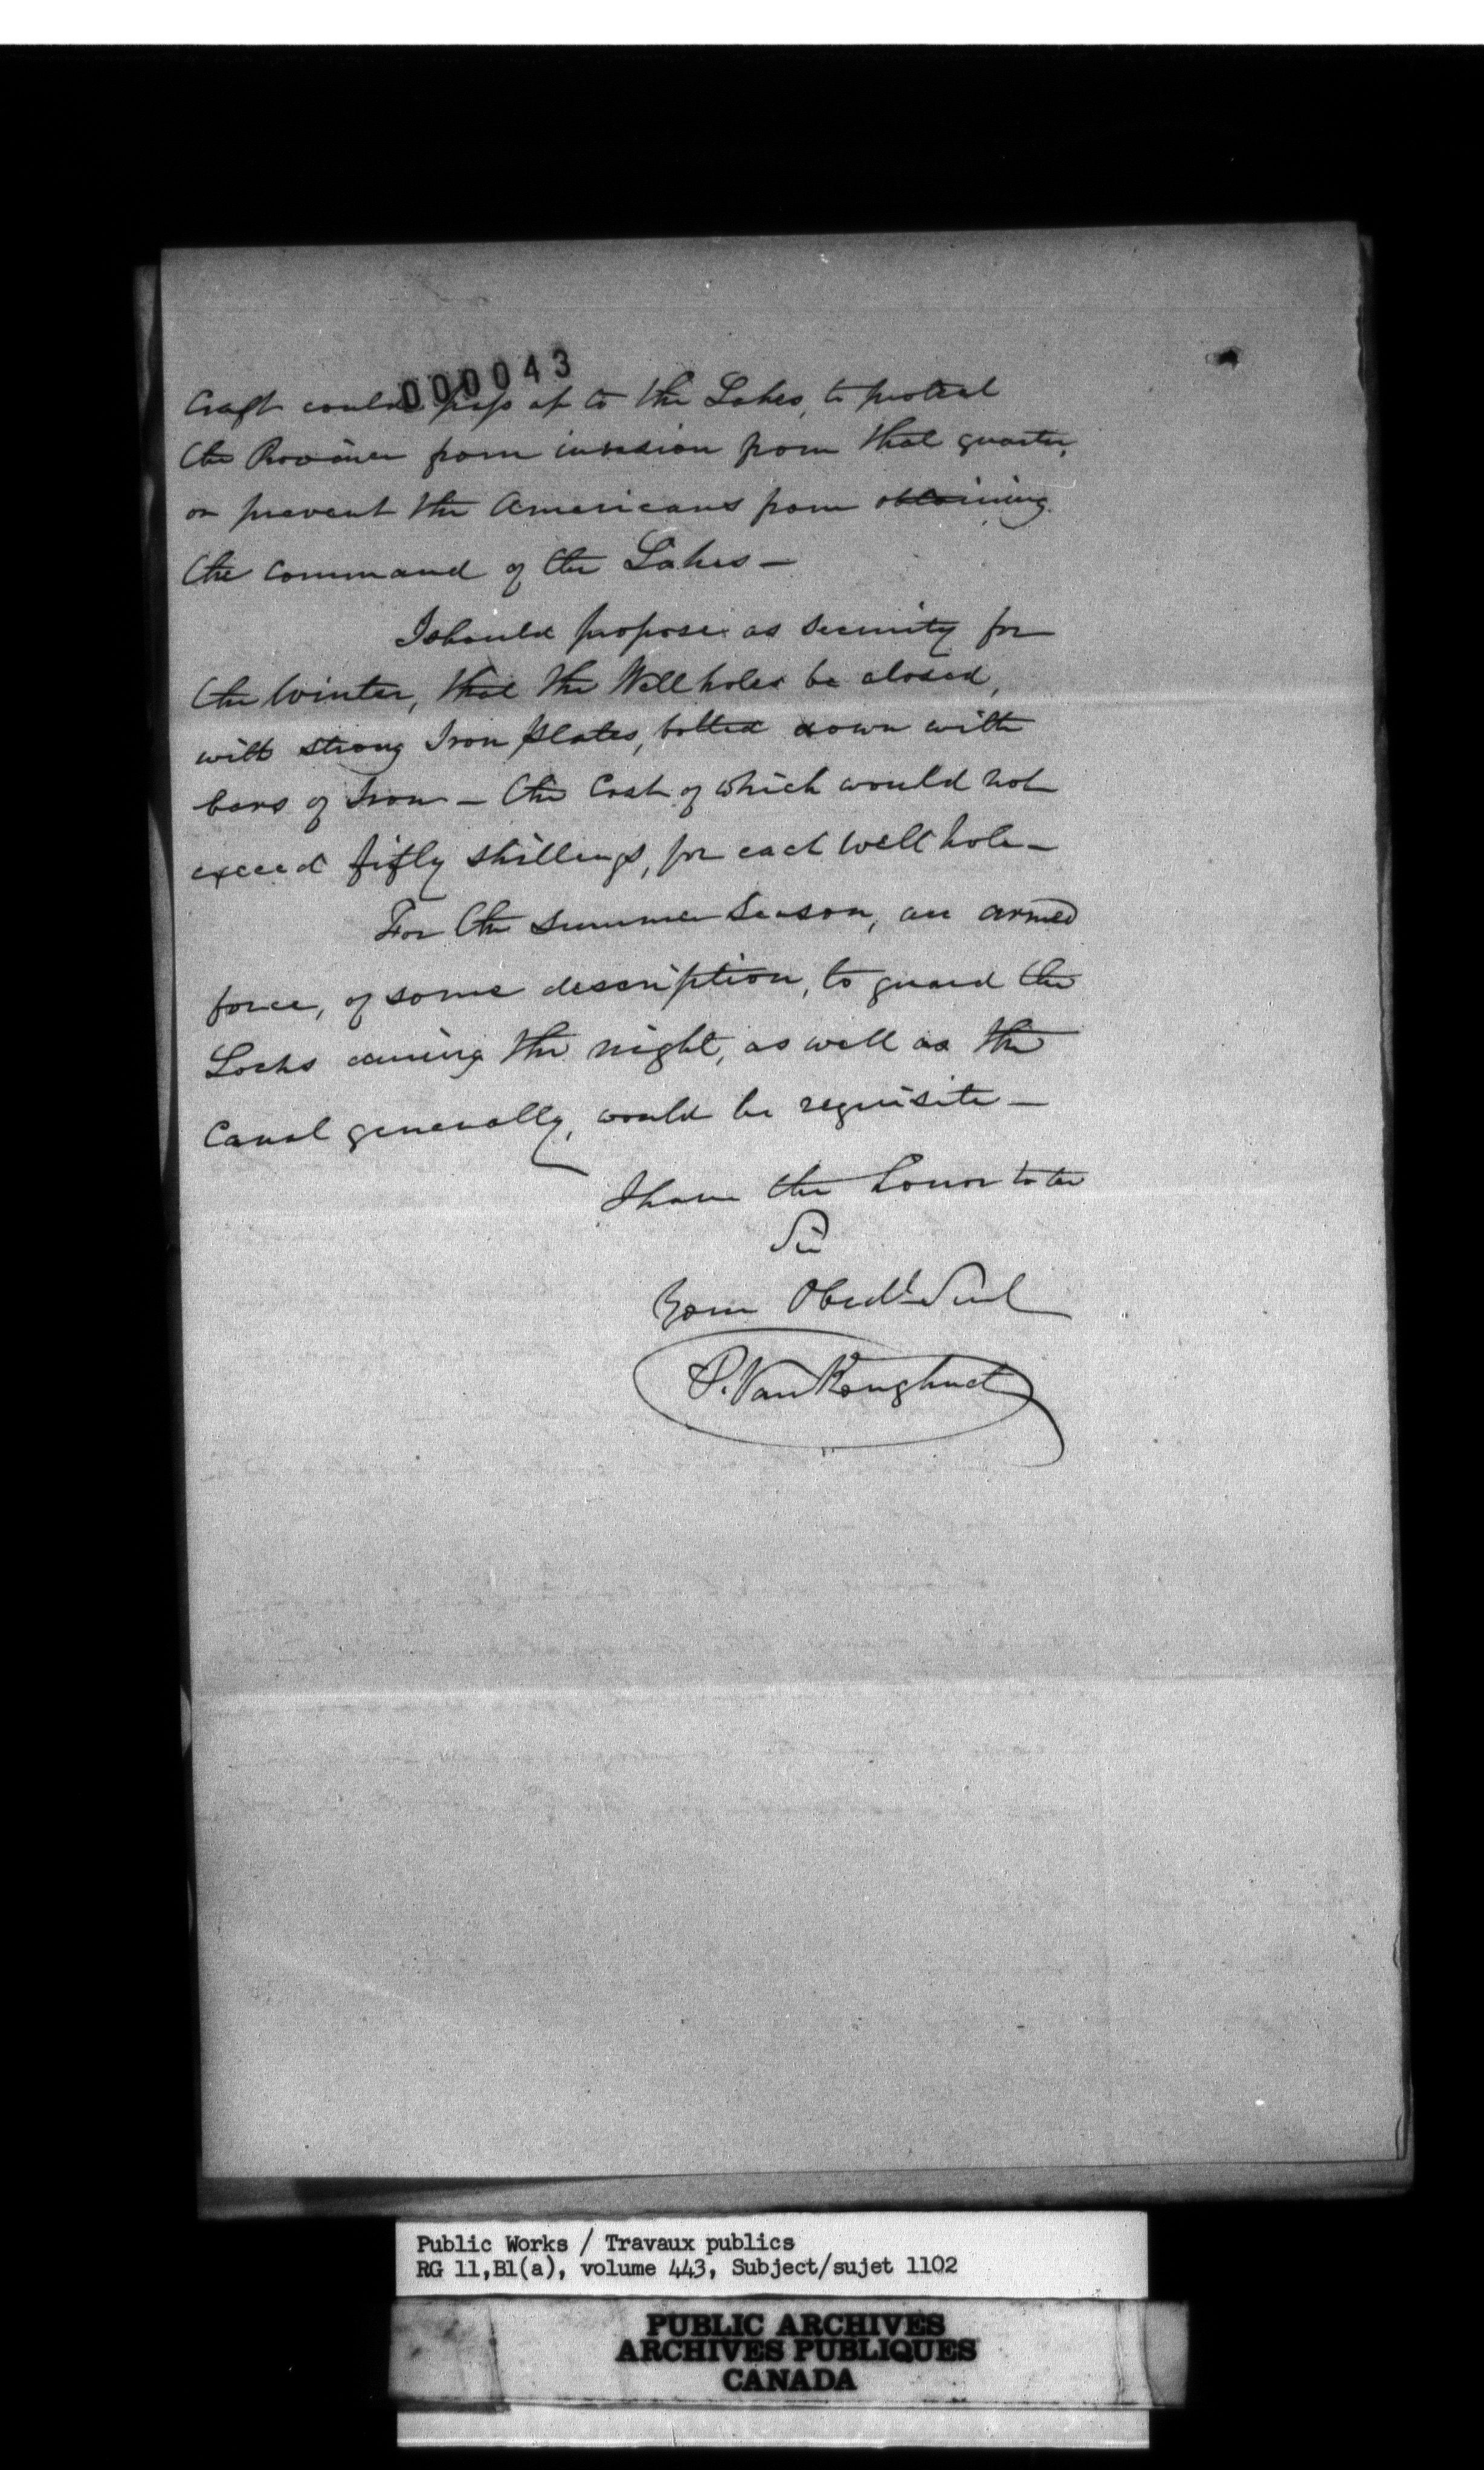 000043
Craft could pass up to the Lakes, to protect
the Province from invasion from that quarter,
or prevent the Americans from obtaining
the command of the Lakes —
I should propose as security for
the Winter, that the Well holes be closed,
with strong Iron plates, bolted down with
bars of Iron — the Cost of which would not
exceed fifty shillings, for each well hole —
For the Summer Season, an armed
force, of some description, to guard the
Locks during the night, as well as the
Canal generally, would be requisite —
I have the honor to be
Sir
Your Obedt Servt
P. VanKoughnet
Public Works / Travaux publics
RG 11,B1(a), volume 443, Subject/sujet 1102
PUBLIC ARCHIVES
ARCHIVES PUBLIQUES
CANADA